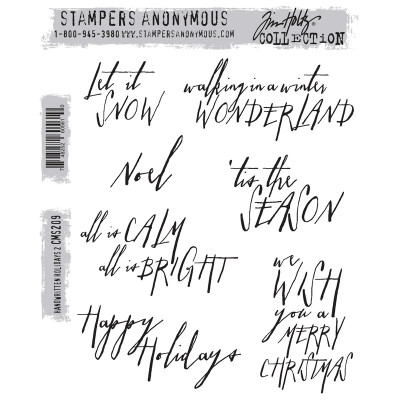 STAMPERS ANONYMOUS
1-800-945-3980 www.STAMPERSANONYMOUS.COM
Tim Holtz
COLLECTION
Let it
SNOW
walking in a winter
WONDERLAND
Noel
'tis the
SEASON
all is CALM
all is BRIGHT
we
WISH
you a
MERRY
CHRISTMAS
Happy
Holidays
HANDWRITTEN HOLIDAYS 2 CMS209